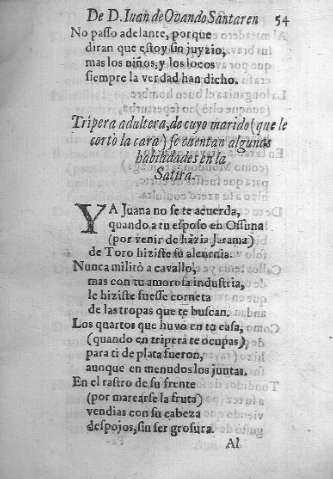 De D. Iuan de Ovando Santaren 54
No passo adelante, porque
diran que estoy sin juyzio,
mas los niños, y los locos
siempre la verdad han dicho.
Tripera adultera, de cuyo marido (que le
cortò la cara) se cuentan algunas
habilidades en la
Satira.
YA Juana no se te acuerda,
quando a tu esposo en Ossuna
(por venir de hàzia Jarama)
de Toro hiziste su alcurnia.
Nunca militò a cavallo,
mas con tu amorosa industria,
le hiziste fuesse corneta
de las tropas que te buscan.
Los quartos que huvo en tu casa,
(quando en tripera te ocupas)
para ti de plata fueron,
aunque en menudos los juntas.
En el rastro de su frente
(por marcarse la fruta)
vendias con su cabeza
despojos, sin ser grosura.
Al